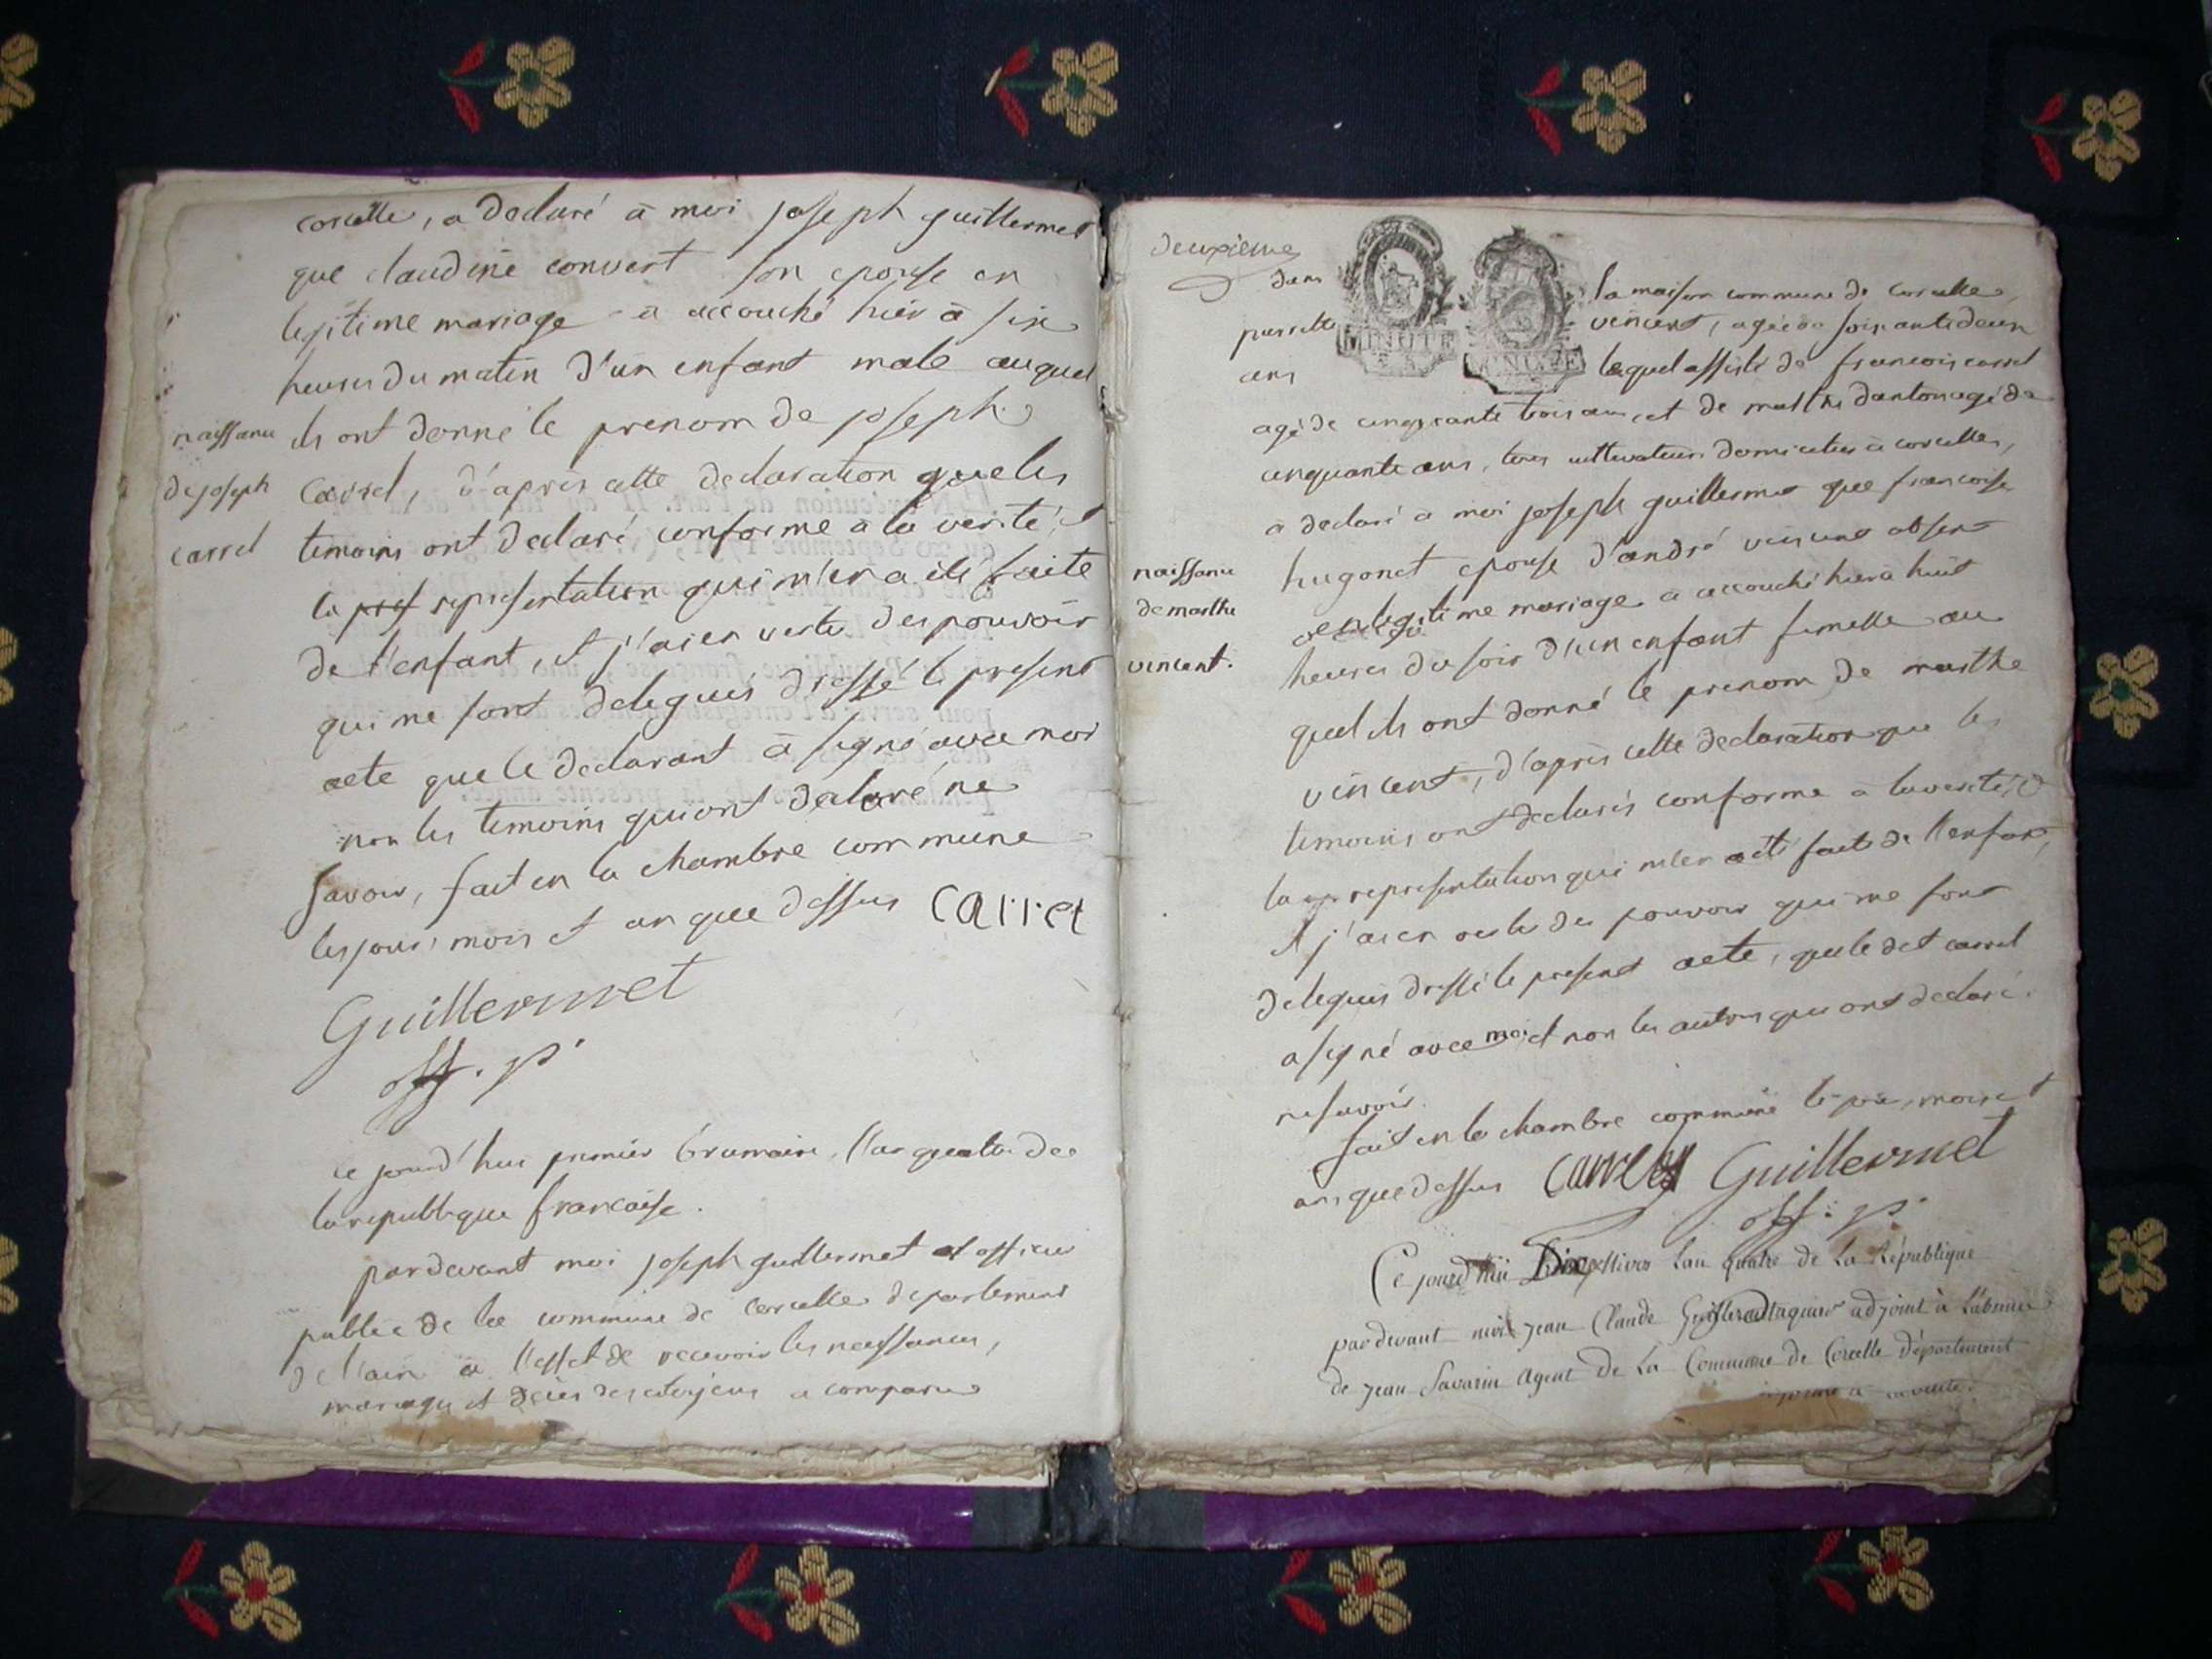 corcelle, a declaré a moi joseph guillermet
que claudine convert son epouse en
legitime mariage a accouché hier a six
heures du matin d'un enfant male auquel
naissance
de joseph
carrel
ils ont donné le prenom de joseph
Carrel, d'après cette declaration que les
temoins ont declaré conforme a la verité, et
la representation qui m'en a été faite
de l'enfant, et j'ai en vertu des pouvoir
qui me sont delegués dressé le present
acte que le declarant a signé avec moi
non les temoins qui ont declaré ne
savoir, fait en la chambre commune
les jour, mois et an que dessus Carrel
Guillermet
off. p.
ce jourd'hui premier brumaire, l'an quatre de
la republique francaise.
pardevant moi joseph guillermet officier
public de la commune de corcelle departement
de l'ain a l'effet de recevoir les naissances,
mariages et deces des citoyens a comparu
deuxieme
dans la maison commune de corcelle,
pierrette vincent, agée de soixante deux
ans lequel assisté de francois carrel
agé de cinquante trois ans, et de mathie danton agé de
cinquante ans, tous cultivateurs domiciliés a corcelles,
a declaré a moi joseph guillermet que francoise
naissance
de marthe
vincent.
hugonet epouse d'andré vincent absent
en legitime mariage a accouché hier a huit
heures du soir d'un enfant femelle au
quel ils ont donné le prenom de marthe
vincent, d'après cette declaration que les
temoins ont declarés conforme a la verité, et
la representation qui m'en a été fait de l'enfant,
et j'ai en vertu des pouvoir qui me sont
delegués dressé le present acte, que le dit carrel
a signé avec moi et non les autres qui ont declaré
ne savoir.
fait en la chambre commune le jour, mois et
ans que dessus Carrel Guillermet
off. p.
Ce jourd'hui Dix Nivos Lan Quatre de La République
pardevant moi Jean Claude adjoint à
de Jean Savarin Agent de La Commune de Corcelle Département